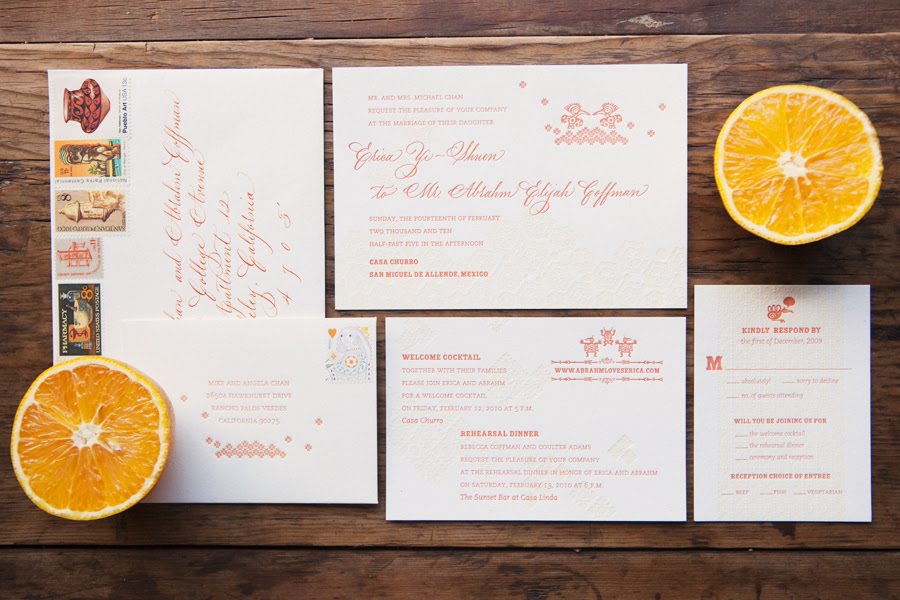 Pueblo Art USA 13c
National Parks Centennial
8c
SAN JUAN, PUERTO RICO
PHARMACY
8c
UNITED STATES POSTAGE
and Abrahm Coffman
College Avenue
Apartment 12
California
MR. AND MRS. MICHAEL CHAN
REQUEST THE PLEASURE OF YOUR COMPANY
AT THE MARRIAGE OF THEIR DAUGHTER
Erica Yi-Shuen
to Mr. Abrahm Elijah Coffman
SUNDAY, THE FOURTEENTH OF FEBRUARY
TWO THOUSAND AND TEN
HALF-PAST FIVE IN THE AFTERNOON
CASA CHURRO
SAN MIGUEL DE ALLENDE, MEXICO
MIKE AND ANGELA CHAN
26504 HAWKHURST DRIVE
RANCHO PALOS VERDES
CALIFORNIA 90275
WELCOME COCKTAIL
TOGETHER WITH THEIR FAMILIES
PLEASE JOIN ERICA AND ABRAHM
FOR A WELCOME COCKTAIL
ON FRIDAY, FEBRUARY 12, 2010 AT 5 P.M.
Casa Churro
WWW.ABRAHMLOVESERICA.COM
REHEARSAL DINNER
REBECCA COFFMAN AND COULTER ADAMS
REQUEST THE PLEASURE OF YOUR COMPANY
AT THE REHEARSAL DINNER IN HONOR OF ERICA AND ABRAHM
ON SATURDAY, FEBRUARY 13, 2010 AT 6 P.M.
The Sunset Bar at Casa Linda
KINDLY RESPOND BY
the first of December, 2009
M
absolutely! sorry to decline
no. of guests attending
WILL YOU BE JOINING US FOR
the welcome cocktail
the rehearsal dinner
ceremony and reception
RECEPTION CHOICE OF ENTREE
BEEF FISH VEGETARIAN